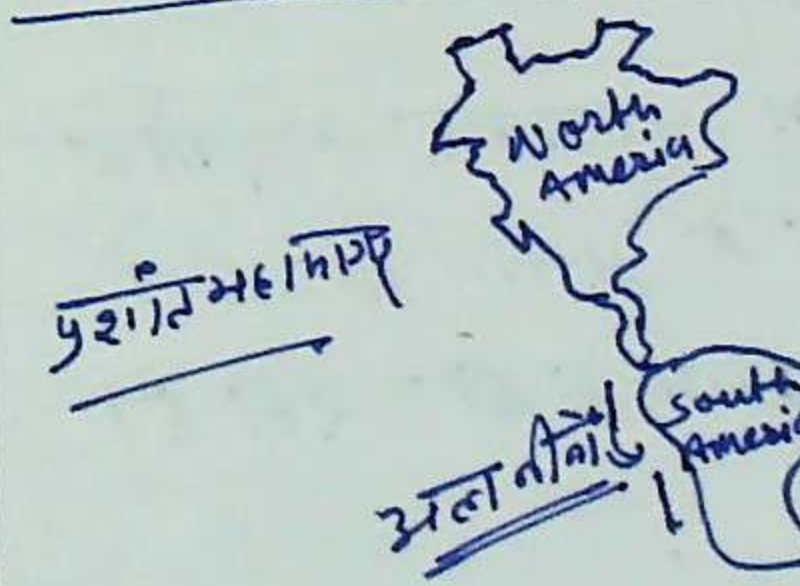 North
America
प्रशांत महासागर
South
Americ
अल नीनो